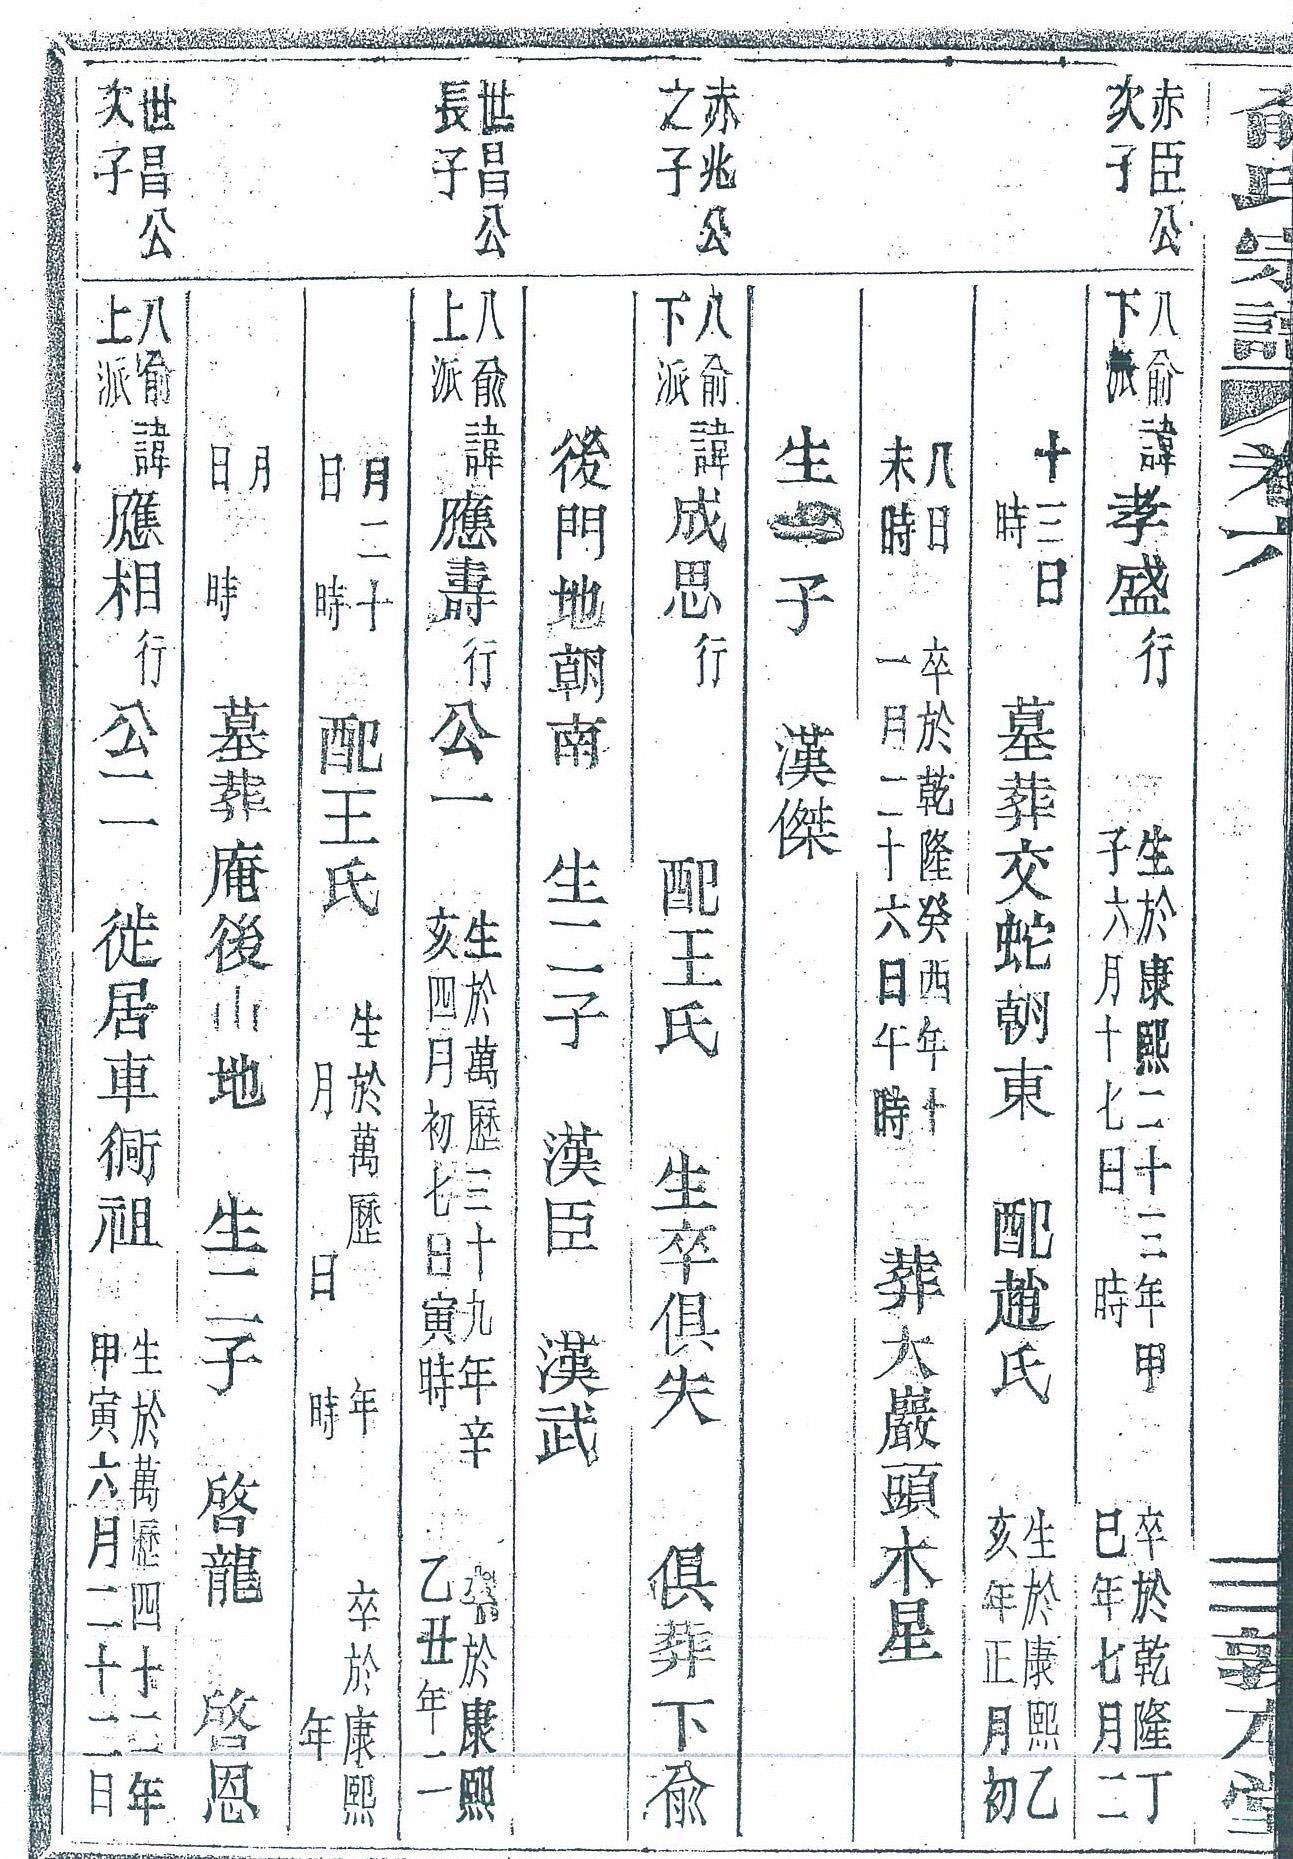 俞氏宗譜 卷六 三 敦本堂
赤臣公
次子
八俞諱孝盛行
下派
生於康熙二十三年甲
子六月十七日 時
卒於乾隆丁
巳年七月二
十三日
時
墓葬交蛇朝東 配趙氏
生於康熙乙
亥年正月初
八日
未時
卒於乾隆癸酉年十
一月二十六日午時
葬大巖頭木星
生一子 漢傑
赤兆公
之子
八俞諱成思行
下派
配王氏 生卒俱失 俱葬下俞
後門地朝南 生二子 漢臣 漢武
世昌公
長子
八俞諱應壽行
上派
公一
生於萬歷三十九年辛
亥四月初七日寅時
卒於康熙
乙丑年二
月二十
日 時
配王氏
生於萬歷 年
月 日 時
卒於康熙
年
月
日 時
墓葬庵後山地 生二子 啓龍 啓恩
世昌公
次子
八俞諱應相行
上派
公二 徙居車衕祖
生於萬歷四十二年
甲寅六月二十二日